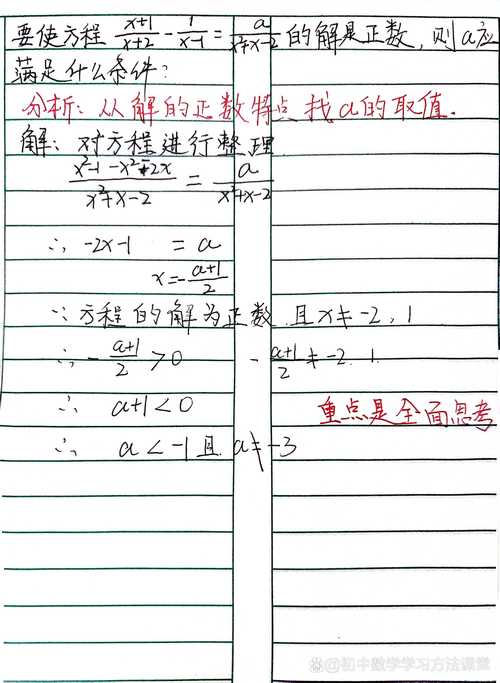 要使方程 (x+1)/(x+2) - 1/(x-1) = a/(x²+x-2) 的解是正数,则a应
满足什么条件?
分析:从解的正数特点找a的取值.
解:对方程进行整理
(x²-1-x²-2x)/(x²+x-2) = a/(x²+x-2)
∴ -2x-1 = a
x=-(a+1)/2
∵方程的解为正数 且x≠-2,1
∴ -(a+1)/2 >0 -(a+1)/2 ≠ -2. 1.
∴ a+1<0
重点是全面思考
∴ a<-1且a≠-3
@初中数学学习方法课堂